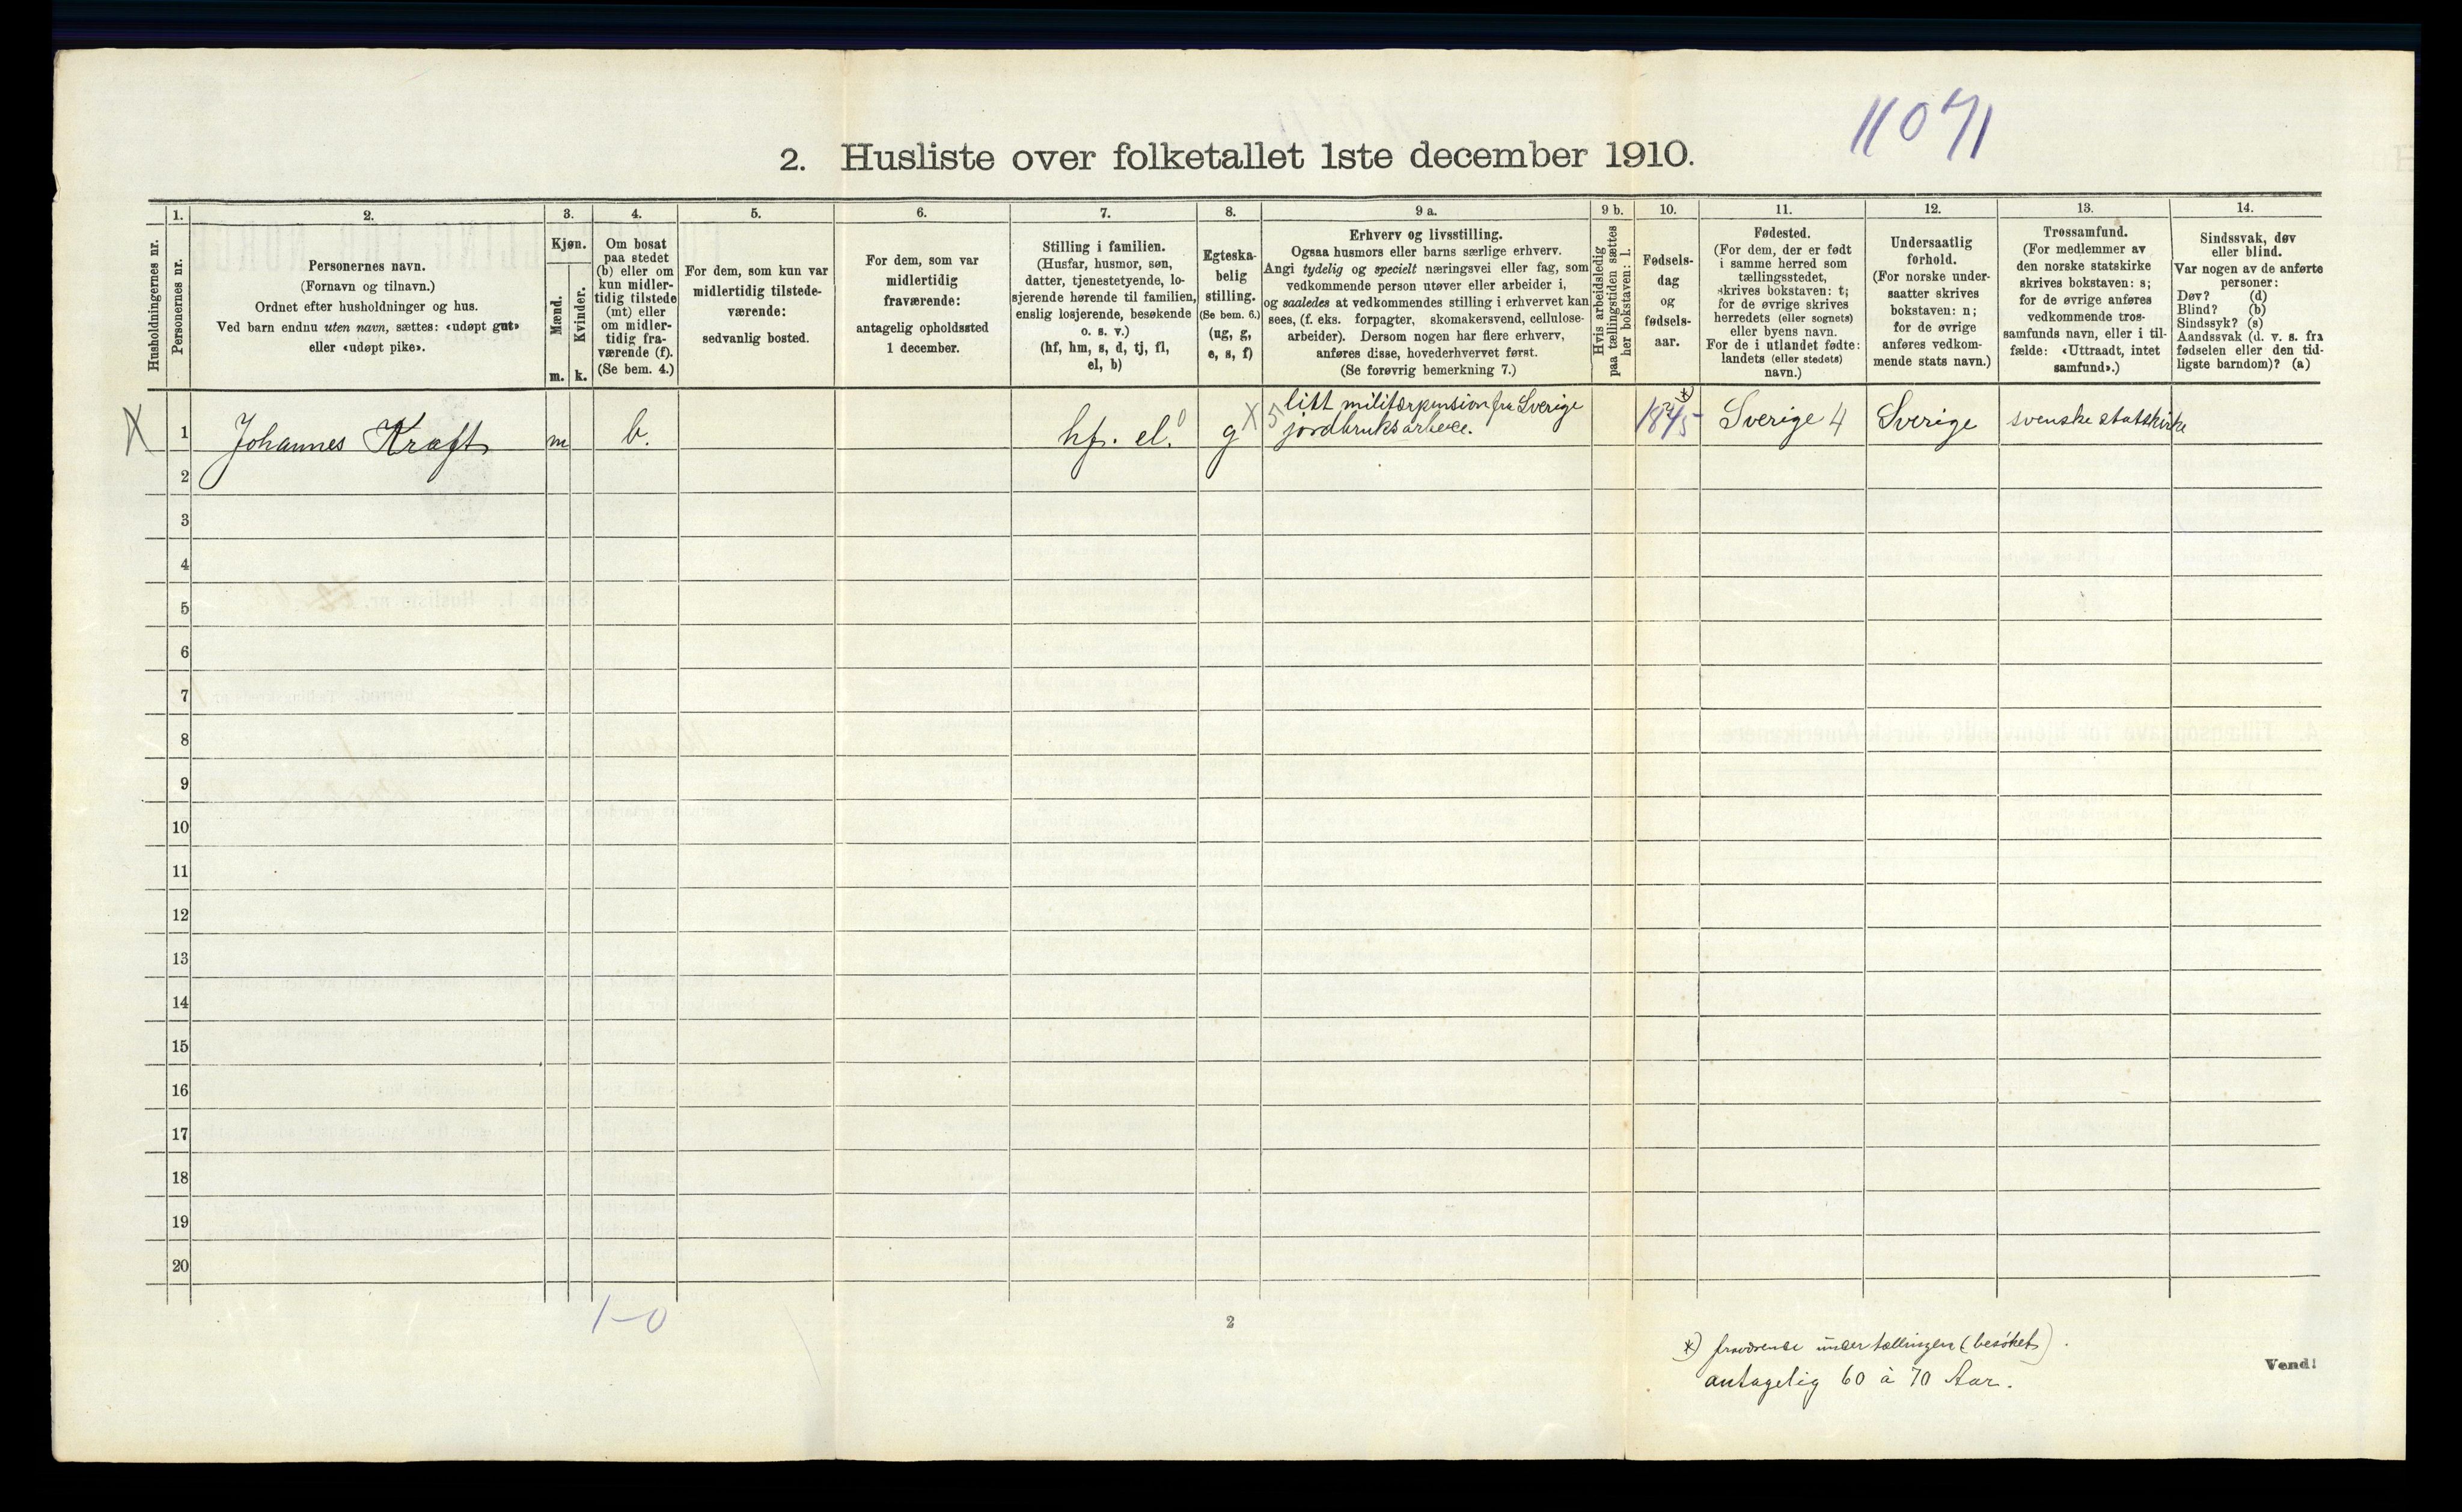 11071
2. Husliste over folketallet 1ste december 1910.
Husholdningernes nr.
1.
Personernes nr.
2.
Personernes navn.
(Fornavn og tilnavn.)
Ordnet efter husholdninger og hus.
Ved barn endnu uten navn, sættes: «udøpt gut»
eller «udøpt pike».
3.
Kjøn.
Mænd.
Kvinder.
m. k.
4.
Om bosat
paa stedet
(b) eller om
kun midler-
tidig tilstede
(mt) eller
om midler-
tidig fra-
værende (f).
(Se bem. 4.)
5.
For dem, som kun var
midlertidig tilstede-
værende:
sedvanlig bosted.
6.
For dem, som var
midlertidig
fraværende:
antagelig opholdssted
1 december.
7.
Stilling i familien.
(Husfar, husmor, søn,
datter, tjenestetyende, lo-
sjerende hørende til familien,
enslig losjerende, besøkende
o. s. v.)
(hf, hm, s, d, tj, fl,
el, b)
8.
Egteska-
belig
stilling.
(Se bem. 6.)
(ug, g,
e, s, f)
9 a.
Erhverv og livsstilling.
Ogsaa husmors eller barns særlige erhverv.
Angi tydelig og specielt næringsvei eller fag, som
vedkommende person utøver eller arbeider i,
og saaledes at vedkommendes stilling i erhvervet kan
sees, (f. eks. forpagter, skomakersvend, cellulose-
arbeider). Dersom nogen har flere erhverv,
anføres disse, hovederhvervet først.
(Se forøvrig bemerkning 7.)
9 b.
Hvis arbeidsledig
paa tællingstiden sættes
her bokstaven: l.
10.
Fødsels-
dag
og
fødsels-
aar.
11.
Fødested.
(For dem, der er født
i samme herred som
tællingsstedet,
skrives bokstaven: t;
for de øvrige skrives
herredets (eller sognets)
eller byens navn.
For de i utlandet fødte:
landets (eller stedets)
navn.)
12.
Undersaatlig
forhold.
(For norske under-
saatter skrives
bokstaven: n;
for de øvrige
anføres vedkom-
mende stats navn.)
13.
Trossamfund.
(For medlemmer av
den norske statskirke
skrives bokstaven: s;
for de øvrige anføres
vedkommende tros-
samfunds navn, eller i til-
fælde: «Uttraadt, intet
samfund».)
14.
Sindssvak, døv
eller blind.
Var nogen av de anførte
personer:
Døv? (d)
Blind? (b)
Sindssyk? (s)
Aandssvak (d. v. s. fra
fødselen eller den tid-
ligste barndom)? (a)
X 1 Johannes Kraft m b. hf. el. 0 g X 5 litt militærpension fra Sverige
jordbruksarbeide. 1845 *) Sverige 4 Sverige svenske statskirke
2
3
4
5
6
7
8
9
10
11
12
13
14
15
16
17
18
19
20
1-0
2
*) fraværende under tællingen (besøket).
antagelig 60 à 70 Aar.
Vend!